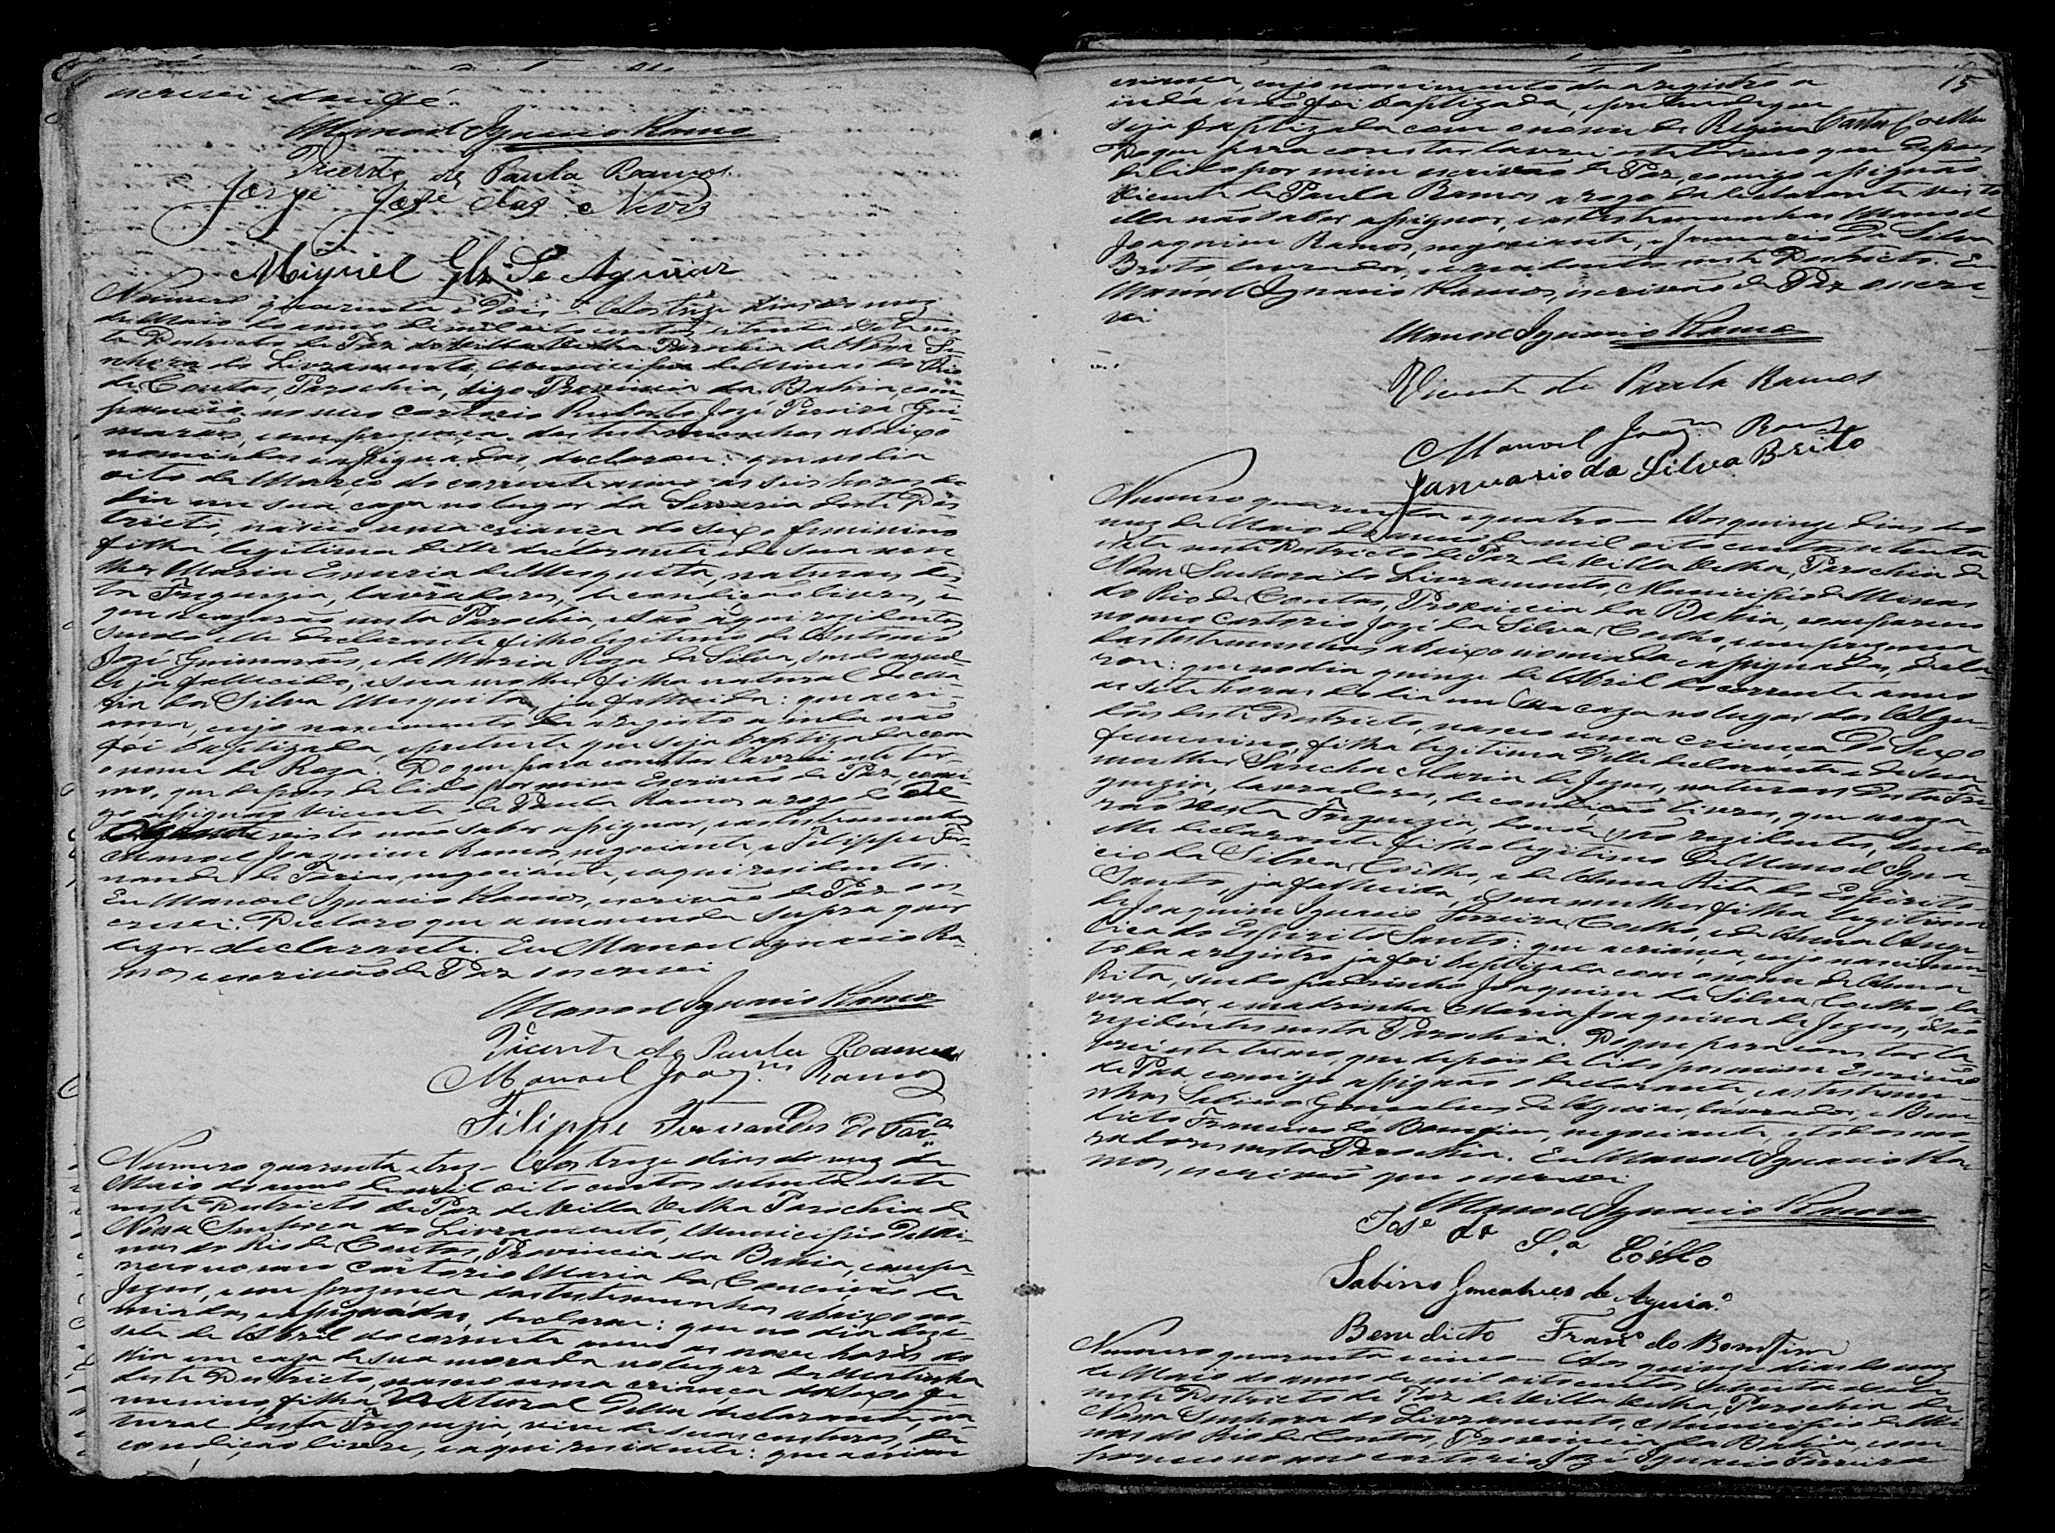 escrevi e dou fé.
Manoel Ignacio Ramos
Vicente de Paula Ramos
Jorge José das Neves
Miguel Glz de Aguiar
Numero quarenta e dois - Aos treze dias do mez
de Maio do anno de mil oito centos setenta e sete nes
te Districto de Paz de Villa Velha Parochia de Nossa Se-
nhora do Livramento, Municipio de Minas do Rio
de Contas, Parochia, digo Provincia da Bahia, com
pareceo no meo cartorio Ruberto Jozé Pereira Gui
marães, e em prezença das testemunhas abaixo
nomiadas e assignadas, declarou: que no dia
oito de Março do corrente anno as seis horas do
dia em sua caza no lugar da Serraria deste Dis
tricto, nasceo uma criança do sexo feminino
filha legitima delle declarante e de sua mu
lher Maria de Mesquita, naturaes des
ta Freguezia, lavradores, de condição livres, e
que se cazarão nesta Parochia, e são aqui rezidentes
sendo elle declarante filho legitimo de Antonio
Jozé Guimarães, e de Maria Roza da Silva, sendo aquel-
le ja fallecido, e sua mulher filha natural de
da Silva Mesquita, ja fallecida: que a cri-
ança, cujo nascimento da registo ainda não
foi baptizada, e pretende que seja baptizada com
o nome de Roza. Do que para constar lavrei este ter-
mo, que depois de lido por mim Escrivão de Paz, comi
go assignão Vicente de Paula Ramos a rogo do
visto não saber assignar, e as testemunhas
Manoel Joaquim Ramos, negociante, e Filippe Fer
nandes de Farias, negociante, e aqui residentes.
Eu Manoel Ignacio Ramos, escrivão de Paz o es
crevi. Declaro que a emmenda supra quer
dizer - declarante. Eu Manoel Ignacio Ra-
mos, escrivão de Paz o escrevi
Manoel Ignacio Ramos
Vicente de Paula Ramos
Manoel Joaqm Ramos
Filippe Fernandes de Fara
Numero quarenta e trez - Aos treze dias do mez de
Maio do anno de mil oito centos setenta e sete
neste Districto de Paz de Villa Velha Parochia de
Nossa Senhora do Livramento, Municipio de Mi
nas do Rio de Contas, Provincia da Bahia, compa-
receo no meo cartorio Maria da Conceição de
Jezus, e em prezença das testemunhas abaixo no-
miadas e assignadas, declarou: que no dia deze-
sete de Abril do corrente anno as nove horas do
dia em caza de sua morada no lugar da Matinha
deste Districto, nasceo uma criança do sexo fe-
minino filha natural della declarante, na
tural desta Freguezia, vive de suas costuras, de
condição livre, e aqui residente: que a crian
15
criança, cujo nascimento da a registro a
inda não foi baptizada, e pretende que
seja baptizada com o nome de Regina Coelho
Do que para constar lavrei este termo que depois
de lido por mim escrivão de Paz, comigo assignão
Vicente de Paula Ramos a rogo da declarante visto
ella não saber assignar, e as testemunhas Manoel
Joaquim Ramos, negociante, e Januario da Silva
Brito, lavrador, e rezidentes neste Districto. Eu
Manoel Ignacio Ramos, escrivão de Paz o escre-
vi
Manoel Ignacio Ramos
Vicente de Paula Ramos
Manoel Joaqm Ramos
Januario da Silva Brito
Numero quarenta e quatro - Aos quinze dias do
mez de Maio do anno de mil oito centos setenta
e sete neste Districto de Paz de Villa Velha, Parochia de
Nossa Senhora do Livramento, Municipio de Minas
do Rio de Contas, Provincia da Bahia, compareceo
no meo cartorio Jozé da Silva Coelho, e em prezença
das testemunhas abaixo nomiadas e assignadas, decla-
rou: que no dia quinze de Abril do corrente anno
as sete horas do dia em sua caza no lugar dos Algu-
dões deste Districto, nasceo uma criança do sexo
feminino, filha legitima delle declarante e de sua
mulher Sancha Maria de Jezus, naturaes desta Fre
guezia, lavradores, de condição livres, que se caza-
rão nesta Freguezia, donde são rezidentes, sendo
elle declarante filho legitimo de Manoel Igna-
cio da Silva Coelho, e de Anna Rita do Espirito
Santo, ja fallecida, e sua mulher filha legitima
de Joaquim Ignacio Ferreira Coelho, e de Anna Ange
lica do Espirito Santo: que a criança, cujo nascimen
to da a registro ja foi baptizada com o nome de Anna
Rita, sendo padrinho Joaquim da Silva Coelho, la-
vrador, e madrinha Maria Joaquina de Jezus,
rezidentes nesta Parochia. Do que para constar la
vrei este termo, que depois de lido por mim Escrivão
de Paz comigo assignão o declarante, e as testemu-
nhas Sabino Gonsalves de Aguiar, lavrador, e Bene
dicto Francisco do Bomfim, negociante, e todos mo-
radores nesta Parochia. Eu Manoel Ignacio Ra-
mos, escrivão que o escrevi
Manoel Ignacio Ramos
José da Sa Coelho
Sabino Goncalves de Aguiar
Benedicto Franco do Bomfim
Numero quarenta e cinco - Aos quinze dias do mez
de Maio do anno de mil oito centos setenta e sete
neste Districto de Paz de Villa Velha, Parochia de
Nossa Senhora do Livramento, Municipio de Mi
nas do Rio de Contas, Provincia da Bahia, com-
pareceo no meo cartorio Jozé Ignacio Ferreira